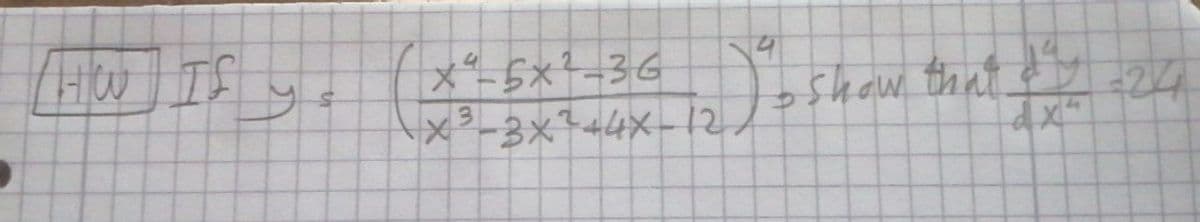 HW If y = ( x⁴-5x²-36 / x³-3x²+4x-12 )⁴, show that d⁴y/dx⁴ = 24